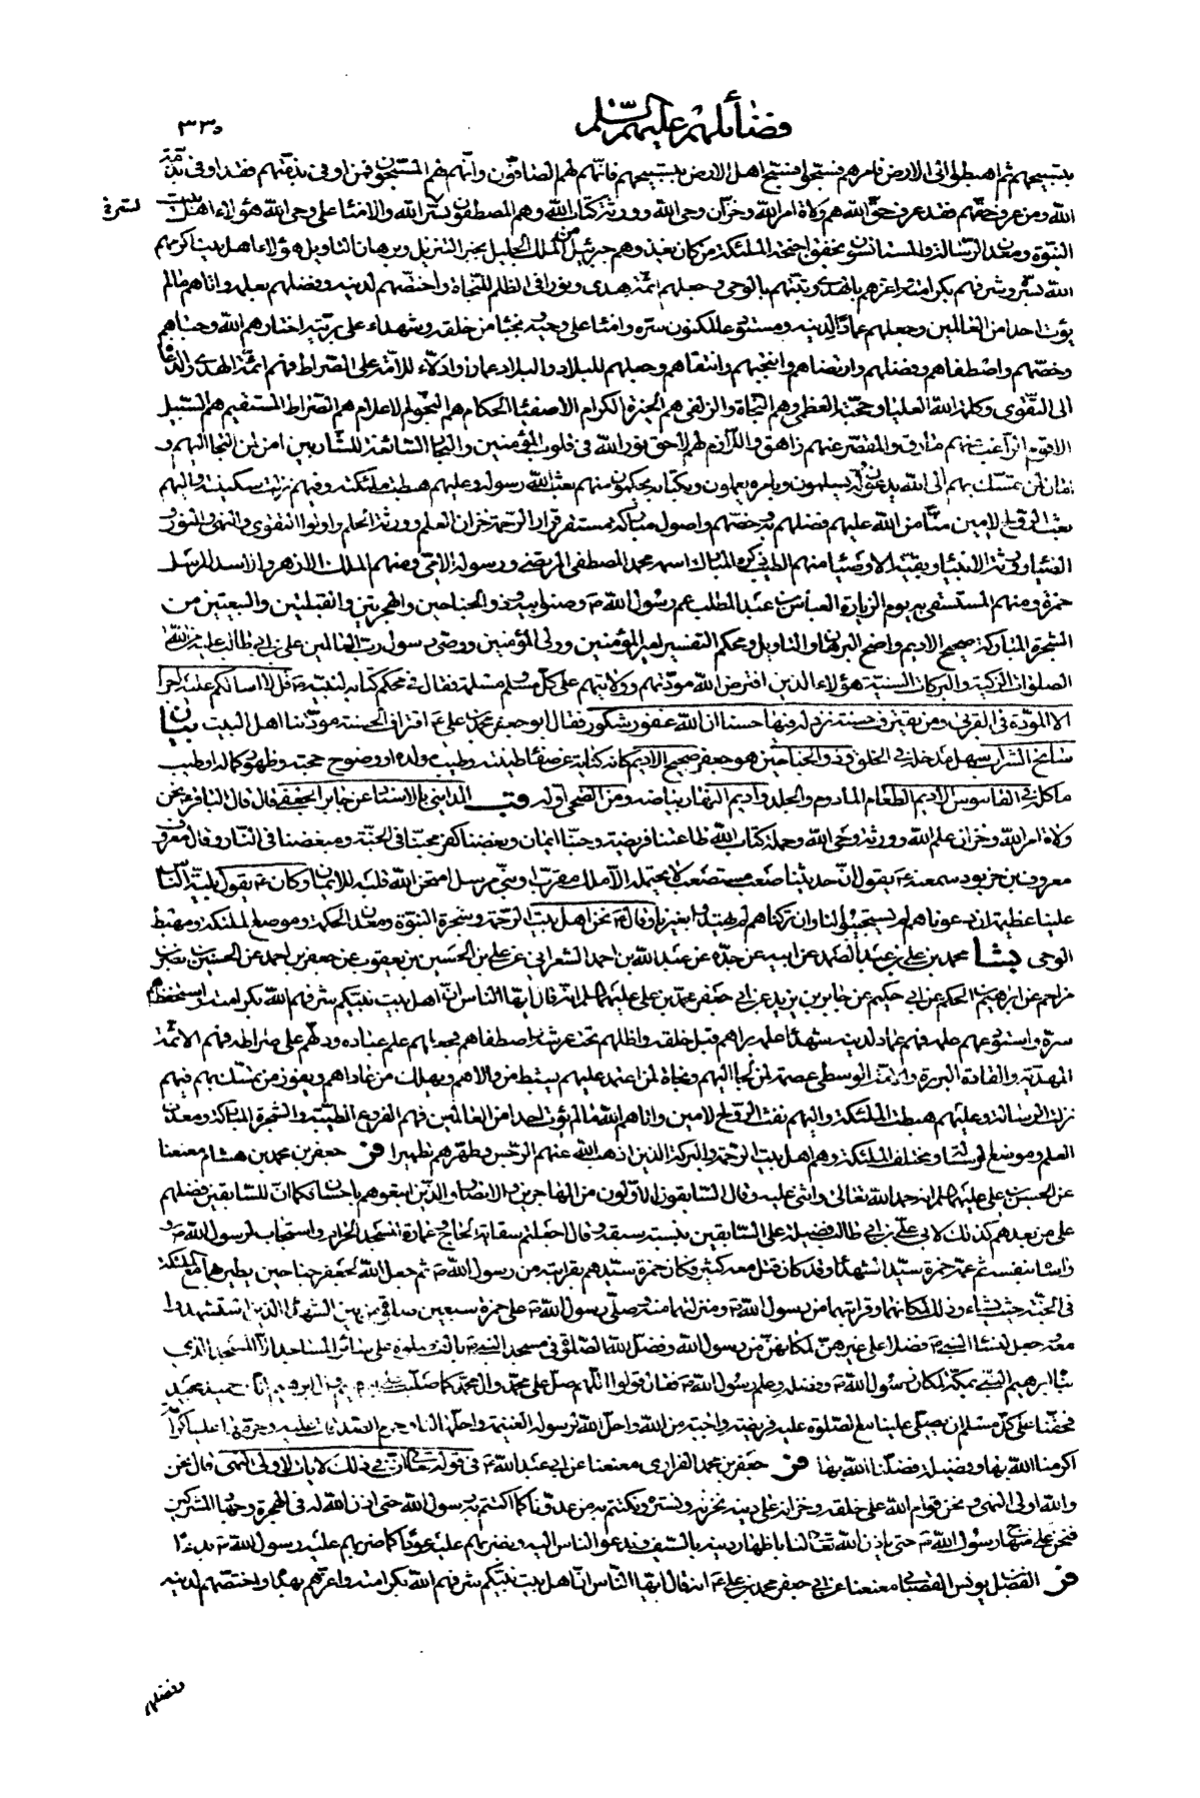 فضائلهم عليهم السلام
٣٣٥
بتسبيحهم ثم اهبطوا الى الارض فامرهم فسبحوا فسبح اهل الارض بتسبيحهم فانهم لهم الصافون وانهم لهم المسبحون فمن اوفى بذمتهم فقد اوفى بذمة
الله ومن عرف حقهم فقد عرف حق الله هم ولاة امر الله وخزان وحى الله وورثة كتاب الله وهم المصطفون بسر الله والامناء على وحى الله هؤلاء اهل بيت
النبوة ومعدن الرسالة والمستانسون بخفق اجنحة الملئكة من كان يغذوهم جبرئيل من الملك الجليل بخبر التنزيل وبرهان التاويل هؤلاء اهل بيت اكرمهم
الله بسره وشرفهم بكرامته واعزهم بالهدى وثبتهم بالوحى وجعلهم ائمة هدى ونورا فى الظلم للنجاة واختصهم لدينه وفضلهم بعلمه واتاهم ما لم
يؤت احدا من العالمين وجعلهم عمادا لدينه ومستودعا لمكنون سره وامناء على وحيه نجباء من خلقه وشهداء على بريته اختارهم الله وحباهم
وخصهم واصطفاهم وفضلهم وارتضاهم وانتجبهم وانتقاهم وجعلهم للبلاد والعباد عمارا وادلاء للامة على الصراط فهم ائمة الهدى والدعاة
الى التقوى وكلمة الله العليا وحجة الله العظمى وهم النجاة والزلفى هم الخيرة الكرام الاصفياء الحكام هم النجوم الاعلام هم الصراط المستقيم هم السبيل
الاقوم الراغب عنهم مارق والمقصر عنهم زاهق واللازم لهم لاحق نور الله فى قلوب المؤمنين والبحار السائغة للشاربين امن لمن التجا اليهم و
امان لمن تمسك بهم الى الله يدعون وله يسلمون وبامره يعملون وبكتابه يحكمون منهم بعث الله رسوله وعليهم هبطت ملئكته وفيهم نزلت سكينته واليهم
بعث الروح الامين منا من الله عليهم فضلهم به وخصهم واصول مباركة مستقر قرار الرحمة خزان العلم وورثة الحلم واولوا التقوى والنهى والنور
والضياء وورثة الانبياء وبقية الاوصياء منهم الطيب ذكره المبارك اسمه محمد المصطفى المرتضى ورسوله الامى ومنهم الملك الازهر والاسد المرسل
حمزة ومنهم المستسقى به يوم الزيارة العباس بن عبد المطلب عم رسول الله ص وصنو ابيه وذو الجناحين والهجرتين والقبلتين والبيعتين من
الشجرة المباركة صحيح الاديم واضح البرهان والتاويل ومحكم التفسير امير المؤمنين وولى المؤمنين ووصى رسول رب العالمين على بن ابى طالب عليه من الله
الصلوات الزكية والبركات السنية هؤلاء الذين افترض الله مودتهم وولايتهم على كل مسلم ومسلمة فقال فى محكم كتابه لنبيه ص قل لا اسالكم عليه اجرا
الا المودة فى القربى ومن يقترف حسنة نزد له فيها حسنا ان الله غفور شكور فقال ابو جعفر محمد بن على ع اقتراف الحسنة مودتنا اهل البيت بيان
سائغ الشراب سهل مدخله فى الحلق وذو الجناحين هو جعفر صحيح الاديم كانه كناية عن صفاء طينته وطيب مولده او وضوح حجته وظهور كماله او طيب
ماكله فى القاموس الاديم الطعام المادوم والجلد واديم النهار بياضه ومن الضحى اوله قب المدايني بالاسناد عن جابر الجعفى قال قال الباقر ع نحن
ولاة امر الله وخزان علم الله وورثة وحى الله وحملة كتاب الله طاعتنا فريضة وحبنا ايمان وبغضنا كفر محبنا فى الجنة ومبغضنا فى النار وقال معروف
معروف بن خربوذ سمعته ع يقول ان حديثنا صعب مستصعب لا يحتمله الا ملك مقرب او نبى مرسل او ممتحن الله قلبه للايمان وكان ع يقول بلية الناس
علينا عظيمة ان دعوناهم لم يستجيبوا لنا وان تركناهم لم يهتدوا بغيرنا وقال ع نحن اهل بيت الرحمة وشجرة النبوة ومعدن الحكمة وموضع الملئكة ومهبط
الوحى بشا محمد بن على بن عبد الصمد عن ابيه عن جده عن عبد الله بن احمد الشعرانى عن على بن الحسين بن يعقوب عن جعفر بن احمد عن الحسين بن نصر بن
مزاحم عن ابرهيم بن الحكم عن ابى حكيم عن جابر بن يزيد عن ابى جعفر محمد بن على عليهما السلم انه قال ايها الناس ان اهل بيت نبيكم شرفهم الله بكرامته واستحفظهم
سره واستودعهم علمه فهم عماد لدينه شهداء علمه براهم قبل خلقه واظلهم تحت عرشه اصطفاهم فجعلهم علم عباده ودلهم على صراطه فهم الائمة
المهدية والقادة البررة والامة الوسطى عصمة لمن لجا اليهم ونجاة لمن اعتمد عليهم يغتبط من والاهم ويهلك من عاداهم ويفوز من تمسك بهم فيهم
نزلت الرسالة وعليهم هبطت الملئكة واليهم نفث الروح الامين واتاهم الله ما لم يؤت احدا من العالمين فهم الفروع الطيبة والشجرة المباركة ومعدن
العلم وموضع الرسالة ومختلف الملئكة وهم اهل بيت الرحمة والبركة الذين اذهب الله عنهم الرجس وطهرهم تطهيرا فر جعفر بن محمد بن هشام معنعنا
عن الحسن بن على عليهما السلم انه حمد الله تعالى واثنى عليه وقال السابقون الاولون من المهاجرين والانصار والذين اتبعوهم باحسان فكما ان للسابقين فضلهم
على من بعدهم كذلك لابى على بن ابى طالب فضيلة على السابقين بسبقه وقال اجعلتم سقاية الحاج وعمارة المسجد الحرام واستجاب لرسول الله ص و
واساه بنفسه ثم عمه حمزة سيد الشهداء وقد كان قتل معه كثير فكان حمزة سيدهم بقرابته من رسول الله ص ثم جعل الله لجعفر جناحين يطير بهما مع الملئكة
فى الجنة حيث يشاء وذلك لمكانهما وقرابتهما من رسول الله ص ومنزلتهما منه وصلى رسول الله ص على حمزة سبعين صلاة من بين الشهداء الذين استشهدوا
معه وجعل لنساء النبى ص فضلا على غيرهن لمكانهن من رسول الله وفضل الله الصلوة فى مسجد النبى ص بالف صلوة على سائر المساجد الا المسجد الذى
بناه ابرهيم النبى بمكة لمكان رسول الله ص وفضله وعلم رسول الله ص فقال قولوا اللهم صل على محمد وال محمد كما صليت على ابرهيم وال ابرهيم انك حميد مجيد
فحقنا على كل مسلم ان يصلى علينا مع الصلوة عليه فريضة واجبة من الله واحل الله لرسوله الغنيمة واحلها لنا وحرم الصدقات عليه وحرمها علينا كرامة
اكرمنا الله بها وفضيلة فضلنا الله بها فر جعفر بن محمد الفزارى معنعنا عن ابى عبد الله ع فى قوله تعالى ان فى ذلك لايات لاولى النهى قال نحن
والله اولى النهى ونحن قوام الله على خلقه وخزانه على دينه نخزنه ونستره ونكتتم به من عدونا كما اكتتم به رسول الله حتى اذن الله له فى الهجرة وجهاد المشركين
فنحن على منهاج رسول الله ص حتى ياذن الله تعالى لنا باظهار دينه بالسيف وندعو الناس اليه ونضربهم عليه عودا كما ضربهم عليه رسول الله ص بدءا
فر الفضل بن يوسف القصبانى معنعنا عن ابى جعفر محمد بن على ع انه قال ايها الناس ان اهل بيت نبيكم شرفهم الله بكرامته واعزهم بهداه واختصهم لدينه
وفضلهم